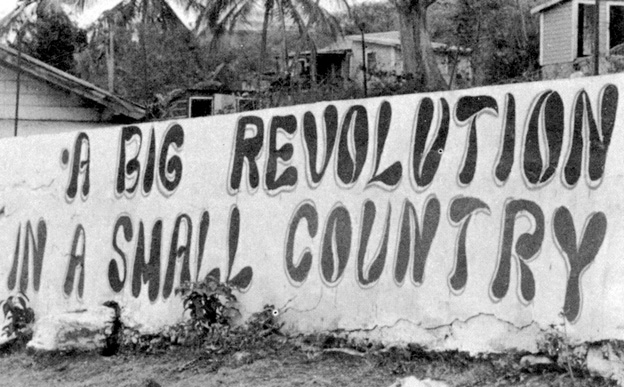 'A BIG REVOLUTION
IN A SMALL COUNTRY